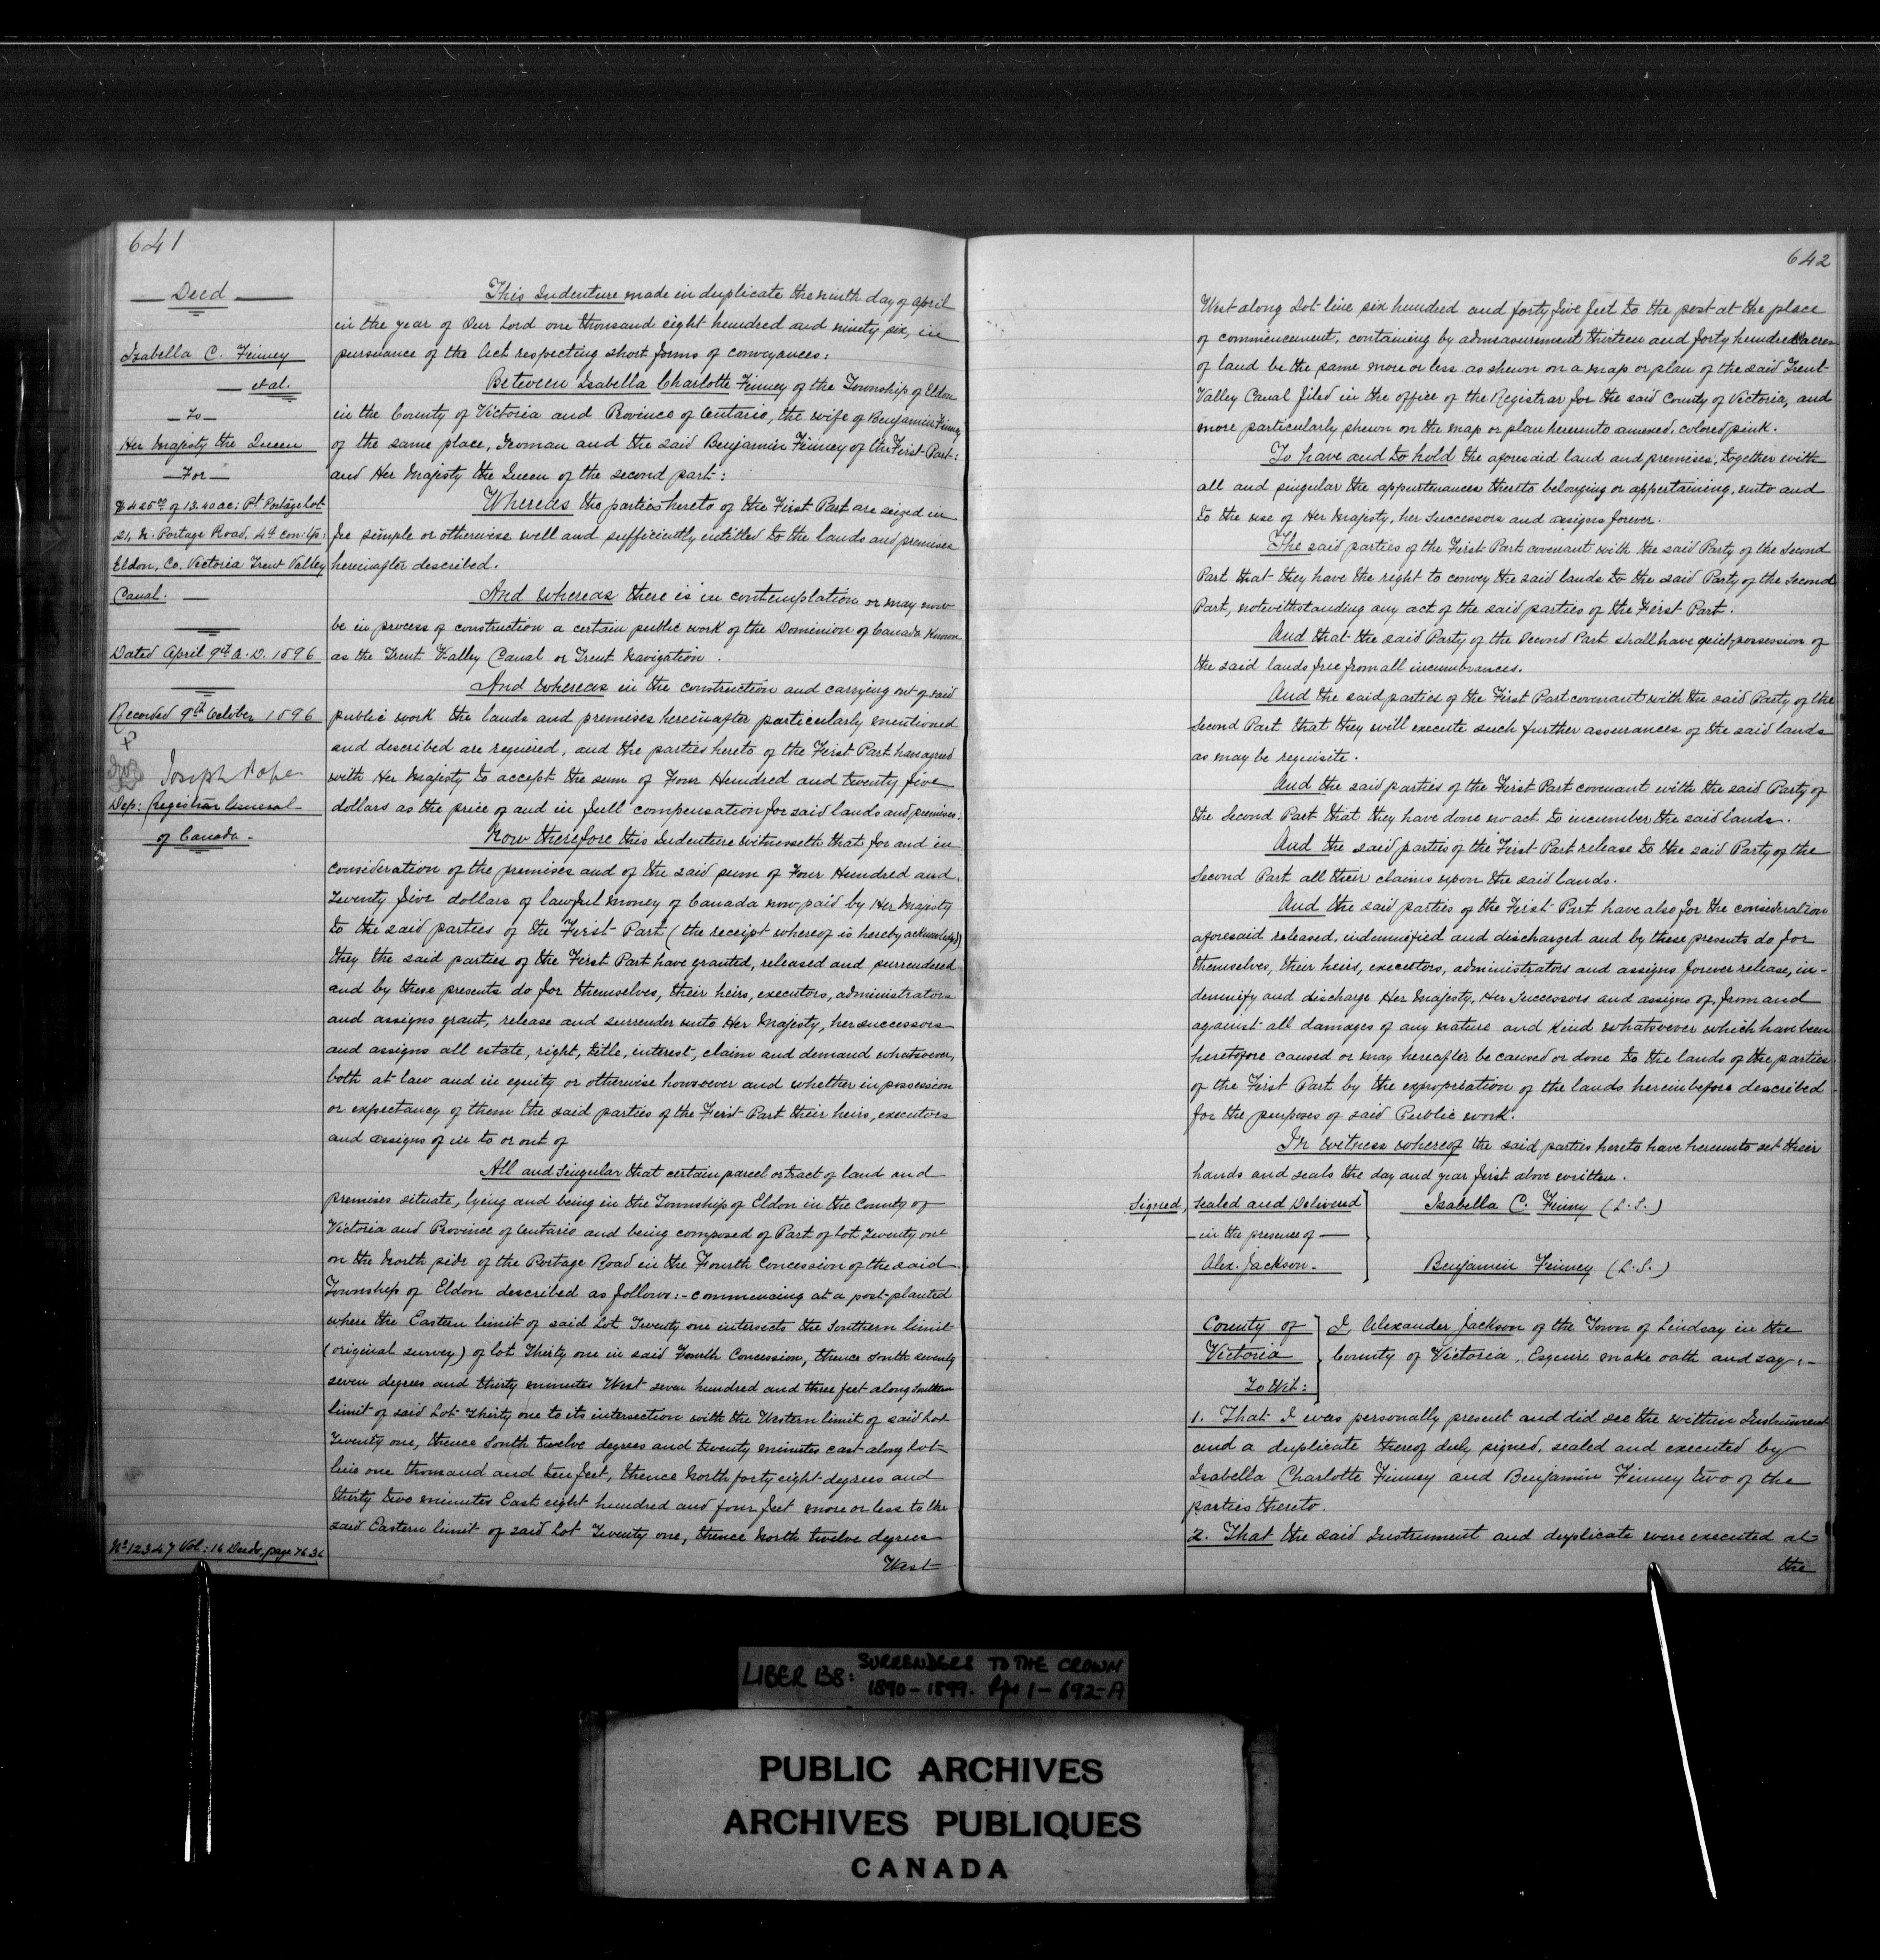 641
Deed
Isabella C. Finney
et al.
To
Her Majesty the Queen
For
$425.00 of 13.40 ac: Pt Portage Lot
21, N. Portage Road, 4th con: Tp:
Eldon, Co. Victoria Trent Valley
Canal.
Dated April 9th A.D. 1896
Recorded 9th October 1896
Joseph Pope
Dep: Registrar General
of Canada.
No 12347 Vol: 16 Deeds, page 7636
This Indenture made in duplicate the ninth day of April
in the year of Our Lord one thousand eight hundred and ninety six, in
pursuance of the Act respecting short forms of conveyances:
Between Isabella Charlotte Finney of the Township of Eldon
in the County of Victoria and Province of Ontario, the wife of Benjamin Finney
of the same place, Yeoman and the said Benjamin Finney of the First Part:
and Her Majesty the Queen of the second part:
Whereas the parties hereto of the First Part are seized in
fee simple or otherwise well and sufficiently entitled to the lands and premises
hereinafter described.
And whereas there is in contemplation or may now
be in process of construction a certain public work of the Dominion of Canada Known
as the Trent Valley Canal or Trent Navigation.
And whereas in the construction and carrying out of said
public work the lands and premises hereinafter particularly mentioned
and described are required, and the parties hereto of the First Part have agreed
with Her Majesty to accept the sum of Four Hundred and twenty five
dollars as the price of and in full compensation for said lands and premises.
Now therefore this Indenture witnesseth that for and in
consideration of the premises and of the said sum of Four Hundred and
Twenty five dollars of lawful money of Canada now paid by Her Majesty
to the said parties of the First Part (the receipt whereof is hereby acknowledged)
they the said parties of the First Part have granted, released and surrendered
and by these presents do for themselves, their heirs, executors, administrators
and assigns grant, release and surrender unto Her Majesty, her successors
and assigns all estate, right, title, interest, claim and demand whatsoever,
both at law and in equity or otherwise howsoever and whether in possession
or expectancy of them the said parties of the First Part their heirs, executors
and assigns of in to or out of
All and Singular that certain parcel or tract of land and
premises situate, lying and being in the Township of Eldon in the County of
Victoria and Province of Ontario and being composed of Part of Lot Twenty one
on the North side of the Portage Road in the Fourth Concession of the said
Township of Eldon described as follows:- commencing at a post planted
where the Eastern limit of said Lot Twenty one intersects the Southern limit
(original survey) of Lot Thirty one in said Fourth Concession, thence South seventy
seven degrees and thirty minutes West seven hundred and three feet along Southern
limit of said Lot Thirty one to its intersection with the Western limit of said Lot
Twenty one, thence South twelve degrees and twenty minutes east along Lot
line one thousand and ten feet, thence North forty eight degrees and
thirty two minutes East eight hundred and four feet more or less to the
said Eastern limit of said Lot Twenty one, thence North twelve degrees
West
642
West along Lot line six hundred and forty five feet to the post at the place
of commencement, containing by admeasurement thirteen and forty hundredths acres
of land be the same more or less as shewn on a map or plan of the said Trent
Valley Canal filed in the office of the Registrar for the said County of Victoria, and
more particularly shewn on the map or plan hereunto annexed, colored pink.
To have and to hold the aforesaid land and premises, together with
all and singular the appurtenances thereto belonging or appertaining, unto and
to the use of Her Majesty, her Successors and assigns forever.
The said parties of the First Part covenant with the said Party of the Second
Part that they have the right to convey the said lands to the said Party of the Second
Part, notwithstanding any act of the said parties of the First Part.
And that the said Party of the Second Part shall have quiet possession of
the said lands free from all incumbrances.
And the said parties of the First Part covenant with the said Party of the
Second Part that they will execute such further assurances of the said lands
as may be requisite.
And the said parties of the First Part covenant with the said Party of
the Second Part that they have done no act to incumber the said lands.
And the said parties of the First Part release to the said Party of the
Second Part all their claims upon the said lands.
And the said parties of the First Part have also for the consideration
aforesaid released, indemnified and discharged and by these presents do for
themselves, their heirs, executors, administrators and assigns forever release, in-
demnify and discharge Her Majesty, Her Successors and assigns of, from and
against all damages of any nature and kind whatsoever which have been
heretofore caused or may hereafter be caused or done to the lands of the parties
of the First Part by the expropriation of the lands hereinbefore described
for the purposes of said Public work.
In witness whereof the said parties hereto have hereunto set their
hands and seals the day and year first above written.
Signed, Sealed and Delivered Isabella C. Finney (L.S.)
in the presence of
Alex. Jackson. Benjamin Finney (L.S.)
County of I, Alexander Jackson of the Town of Lindsay in the
Victoria County of Victoria, Esquire make oath and say:-
To Wit:
1. That I was personally present and did see the within Instrument
and a duplicate thereof duly signed, sealed and executed by
Isabella Charlotte Finney and Benjamin Finney two of the
parties thereto.
2. That the said Instrument and duplicate were executed at
the
LIBER B8: SURRENDERS TO THE CROWN
1890-1899. Pgs 1-692-A
PUBLIC ARCHIVES
ARCHIVES PUBLIQUES
CANADA